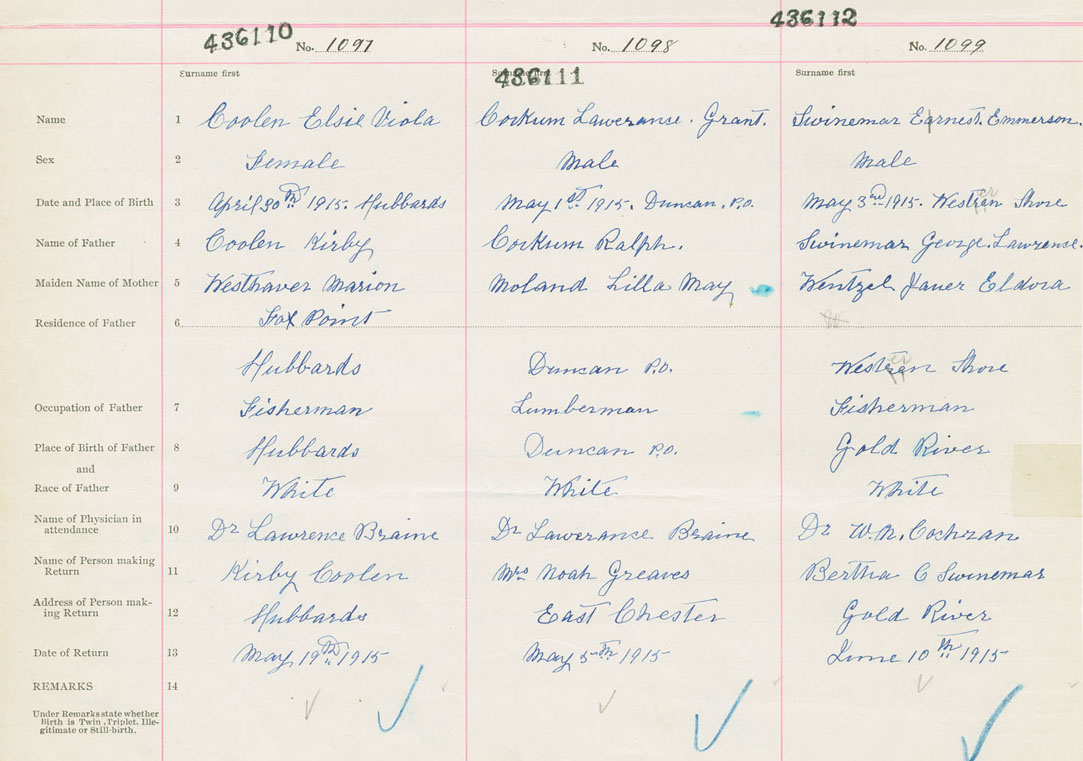 436112
436110 No. 1097 No. 1098 No. 1099
Surname first Surname first Surname first
436111
Name 1 Coolen Elsie Viola Corkum Lawerance. Grant. Swinemar Earnest. Emmerson.
Sex 2 Female Male Male
Date and Place of Birth 3 April 30th 1915. Hubbards May 1st 1915. Duncan. P.O. May 3rd 1915. Westren Shore
Name of Father 4 Coolen Kirby Corkum Ralph. Swinemar George. Lawrense.
Maiden Name of Mother 5 Westhaver Marion Moland Lilla May Wentzel Eldora
Residence of Father 6 Fox Point
Hubbards Duncan P.O. Westren Shore
Occupation of Father 7 Fisherman Lumberman Fisherman
Place of Birth of Father 8 Hubbards Duncan P.O. Gold River
and
Race of Father 9 White White White
Name of Physician in
attendance 10 Dr Lawrence Braine Dr Lawerance Braine Dr W. N. Cochran
Name of Person making
Return 11 Kirby Coolen Mrs Noah Greaves Bertha C Swinemar
Address of Person mak-
ing Return 12 Hubbards East Chester Gold River
Date of Return 13 May 19th 1915 May 5th 1915 June 10th 1915
REMARKS 14
Under Remarks state whether
Birth is Twin, Triplet, Ille-
gitimate or Still-birth.